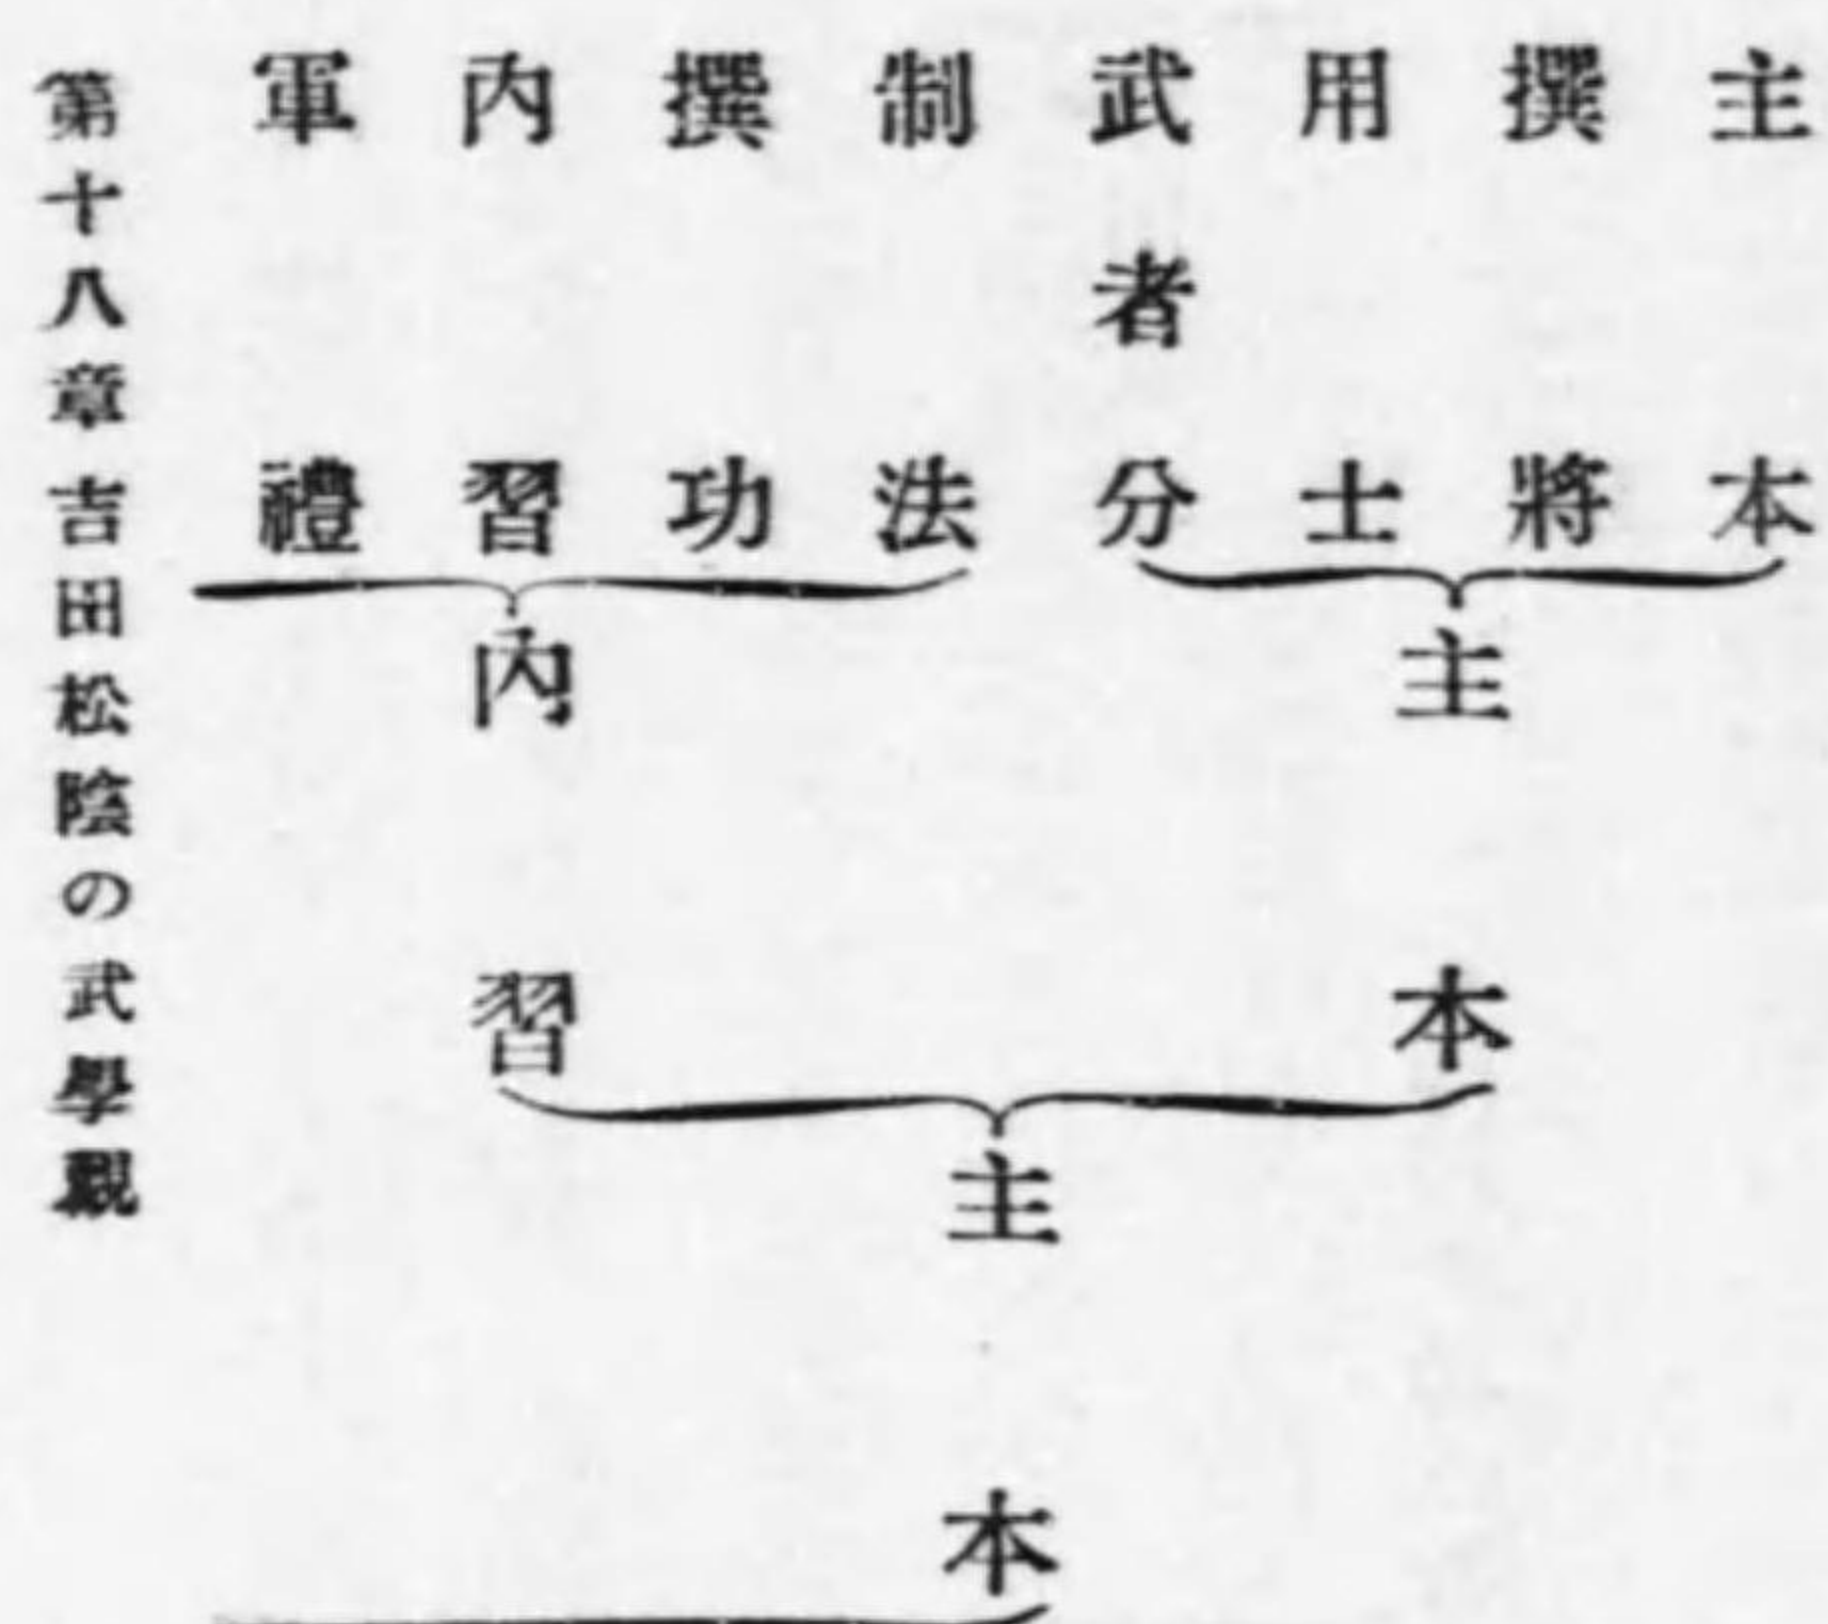 主本
撰將
用士
武者分
制法
撰功
內習
軍禮
主本
內習
主本
第十八章 吉田松陰の武學觀